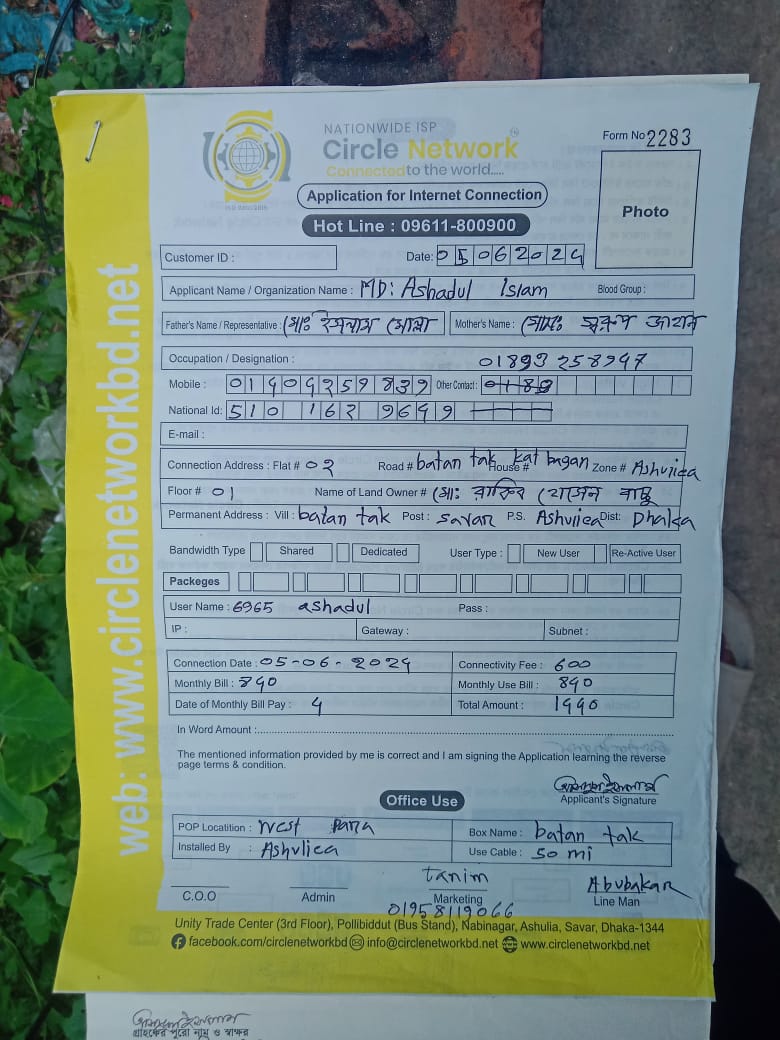 NATIONWIDE ISP
Circle Network
Connected to the world.....
Application for Internet Connection
Hot Line : 09611-800900
Form No 2283
Photo
Customer ID :
Date: 05062024
Applicant Name / Organization Name : MD: Ashadul Islam Blood Group :
Father's Name / Representative : মোঃ ইসলাম মোল্লা Mother's Name : মোসাঃ স্বরূপ জাহান
Occupation / Designation : 01893258947
Mobile : 01909259839 Other Contact :
National Id: 510 162 9699
E-mail :
Connection Address : Flat # 02 Road # batan tak House # kat bagan Zone # Ashuiica
Floor # 01 Name of Land Owner # মোঃ রাকিব হোসেন বাচ্চু
Permanent Address : Vill : batan tak Post : savar P.S. Ashuiica Dist: Dhaka
Bandwidth Type Shared Dedicated User Type : New User Re-Active User
Packeges
User Name : 6965 ashadul Pass :
IP : Gateway : Subnet :
Connection Date : 05-06-2024 Connectivity Fee : 600
Monthly Bill : 840 Monthly Use Bill : 840
Date of Monthly Bill Pay : 4 Total Amount : 1440
In Word Amount :
The mentioned information provided by me is correct and I am signing the Application learning the reverse
page terms & condition.
Applicant's Signature
Office Use
POP Locatition : west para Box Name : batan tak
Installed By : Ashulica Use Cable : 50 mi
tanim Abubakar
C.O.O Admin Marketing Line Man
01958119066
Unity Trade Center (3rd Floor), Pollibiddut (Bus Stand), Nabinagar, Ashulia, Savar, Dhaka-1344
facebook.com/circlenetworkbd info@circlenetworkbd.net www.circlenetworkbd.net
web: www.circlenetworkbd.net
গ্রাহকের পুরো নাম ও স্বাক্ষর